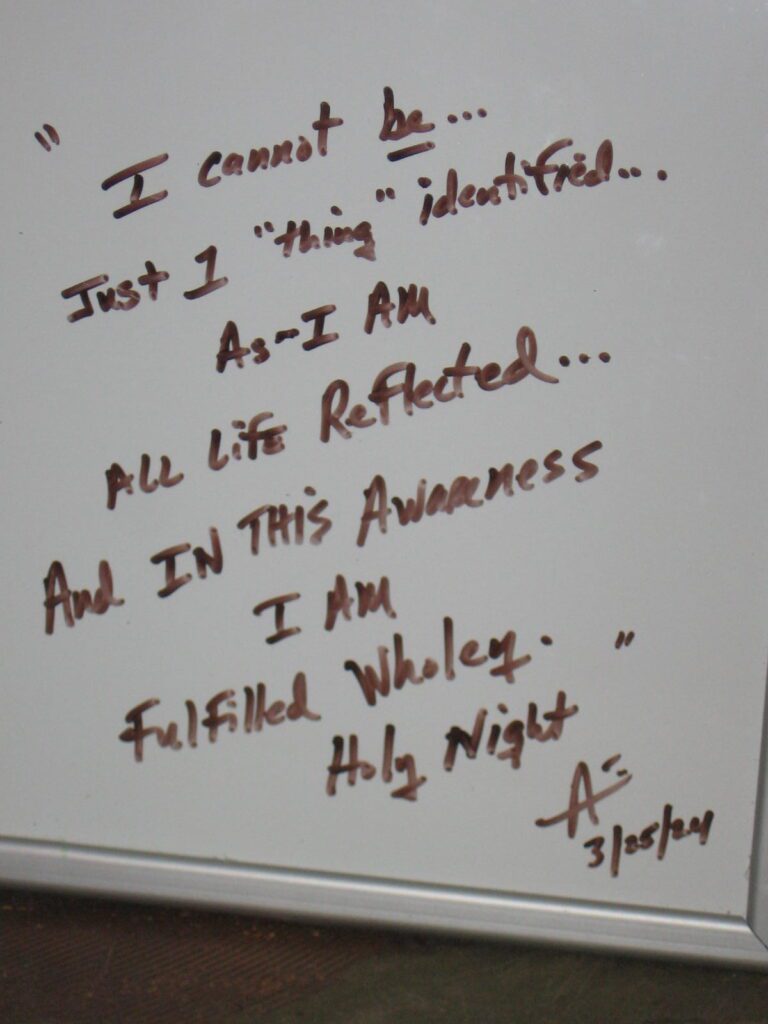 " I cannot be...
Just 1 "thing" identified...
As~I AM
ALL LiFE Reflected...
And IN THiS AWARENESS
I AM
Fulfilled Wholey. "
Holy Night
A=
3/25/24